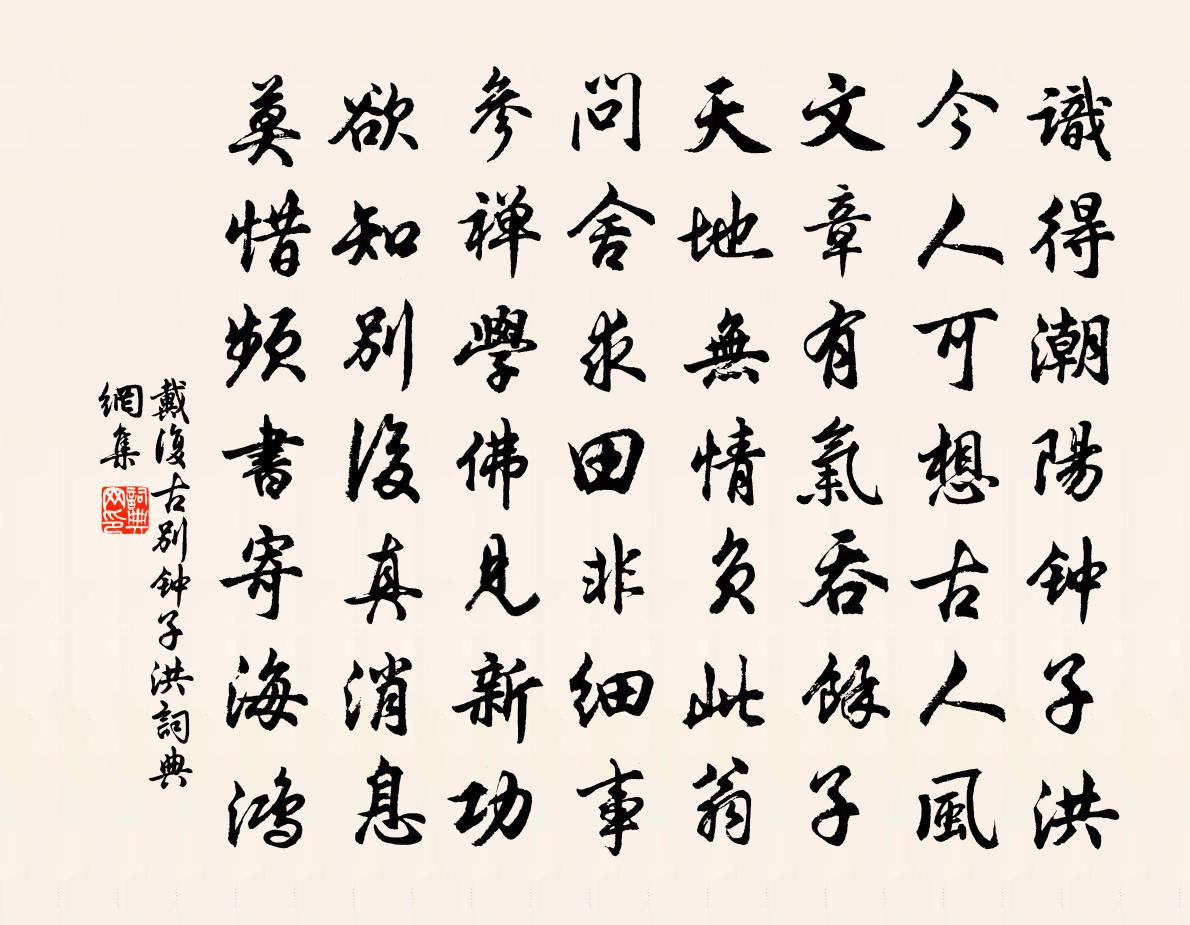 識得潮陽钟子洪
今人可想古人風
文章有氣吞餘子
天地無情负此翁
問舍求田非细事
參禅學佛見新功
欲知别後真消息
莫惜頻書寄海鸿
戴復古别钟子洪詞典
網集
詞典
网印